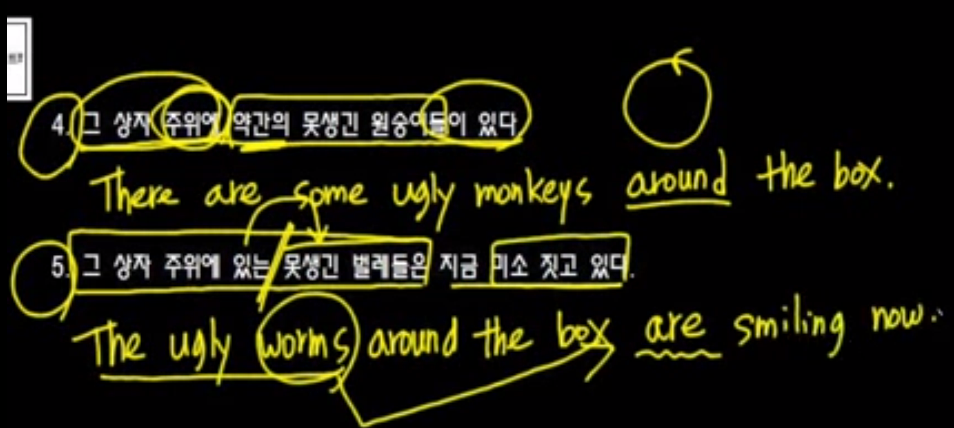 4. 그 상자 주위에 약간의 못생긴 원숭이들이 있다
There are some ugly monkeys around the box.
5. 그 상자 주위에 있는 못생긴 벌레들은 지금 미소 짓고 있다.
The ugly worms around the box are smiling now.